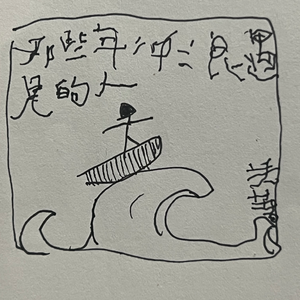 那些年冲浪遇
见的人